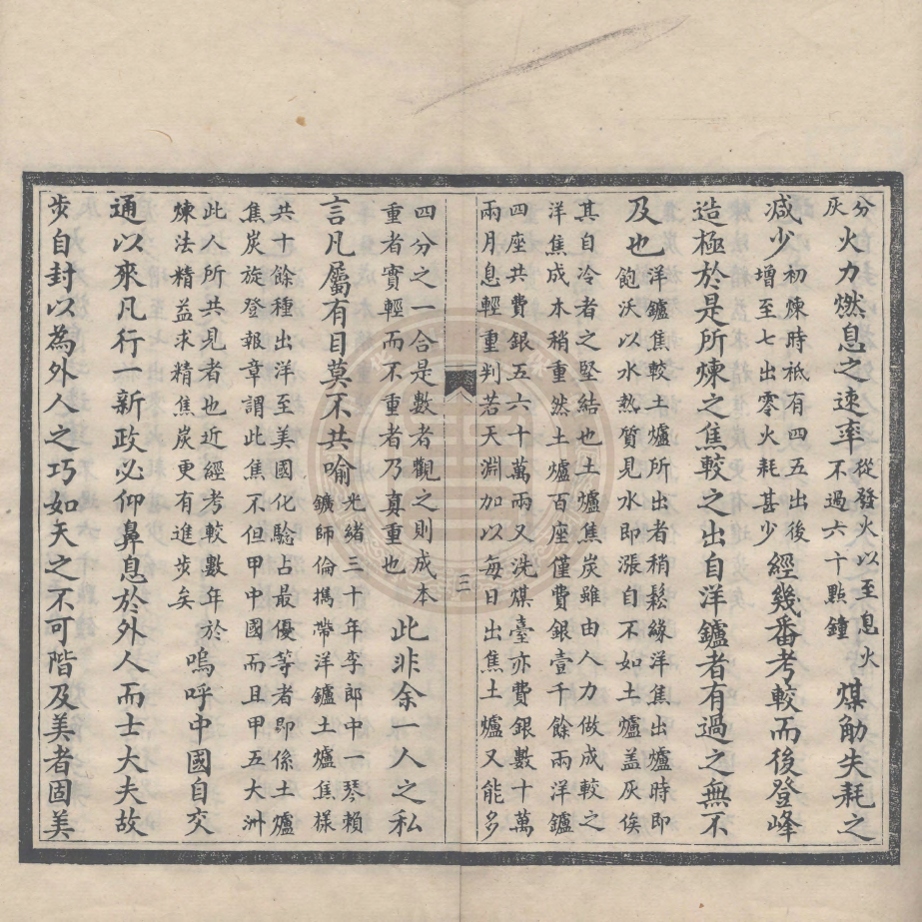 分灰火力燃息之速率從發火以至息火不過六十點鐘煤觔失耗之
减少初煉時祇有四五出後增至七出零火耗甚少經幾番考較而後登峰
造極於是所煉之焦較之出自洋鑪者有過之無不
及也洋鑪焦較土爐所出者稍鬆緣洋焦出爐時即飽沃以水熱質見水即漲自不如土爐盖灰俟
其自冷者之堅結也土爐焦炭雖由人力做成較之洋焦成本稍重然土爐百座僅費銀壹千餘兩洋鑪
四座共費銀五六十萬兩又洗煤臺亦費銀數十萬兩月息輕重判若天淵加以每日出焦土爐又能多
三
四分之一合是數者觀之則成本重者實輕而不重者乃真重也此非余一人之私
言凡屬有目莫不共喻光緒三十年李郎中一琴賴鑛師倫攜帶洋鑪土爐焦樣
共十餘種出洋至美國化騐占最優等者即係土爐焦炭旋登報章謂此焦不但甲中國而且甲五大洲
此人所共見者也近經考較數年於煉法精益求精焦炭更有進步矣嗚呼中國自交
通以來凡行一新政必仰鼻息於外人而士大夫故
步自封以為外人之巧如天之不可階及美者固美